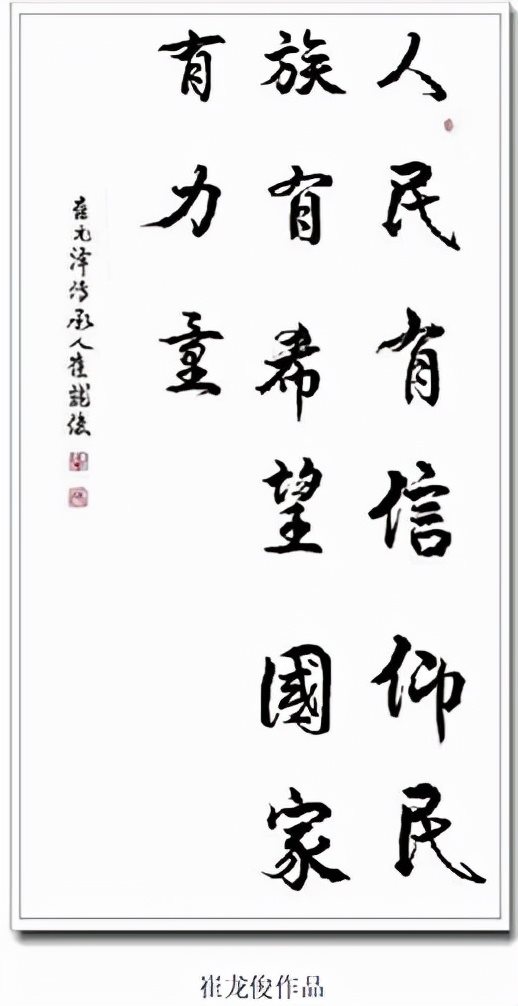 人民有信仰民
族有希望國家
有力量
崔元泽传承人崔龍俊
崔龙俊作品